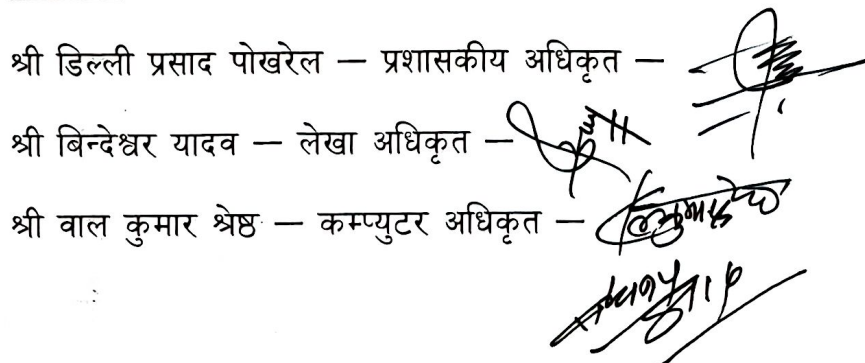 श्री डिल्ली प्रसाद पोखरेल — प्रशासकीय अधिकृत —
श्री बिन्देश्वर यादव — लेखा अधिकृत —
श्री वाल कुमार श्रेष्ठ — कम्प्युटर अधिकृत —